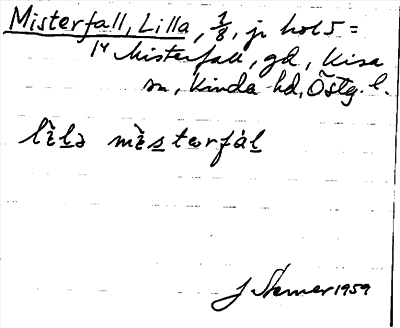 Misterfall, Lilla, 1/8, jr hos =
14 Misterfall, gd, Kisa
sn, Kinda hd, Östg. l.
lὶlə mὶstərfál
J Sterner 1959